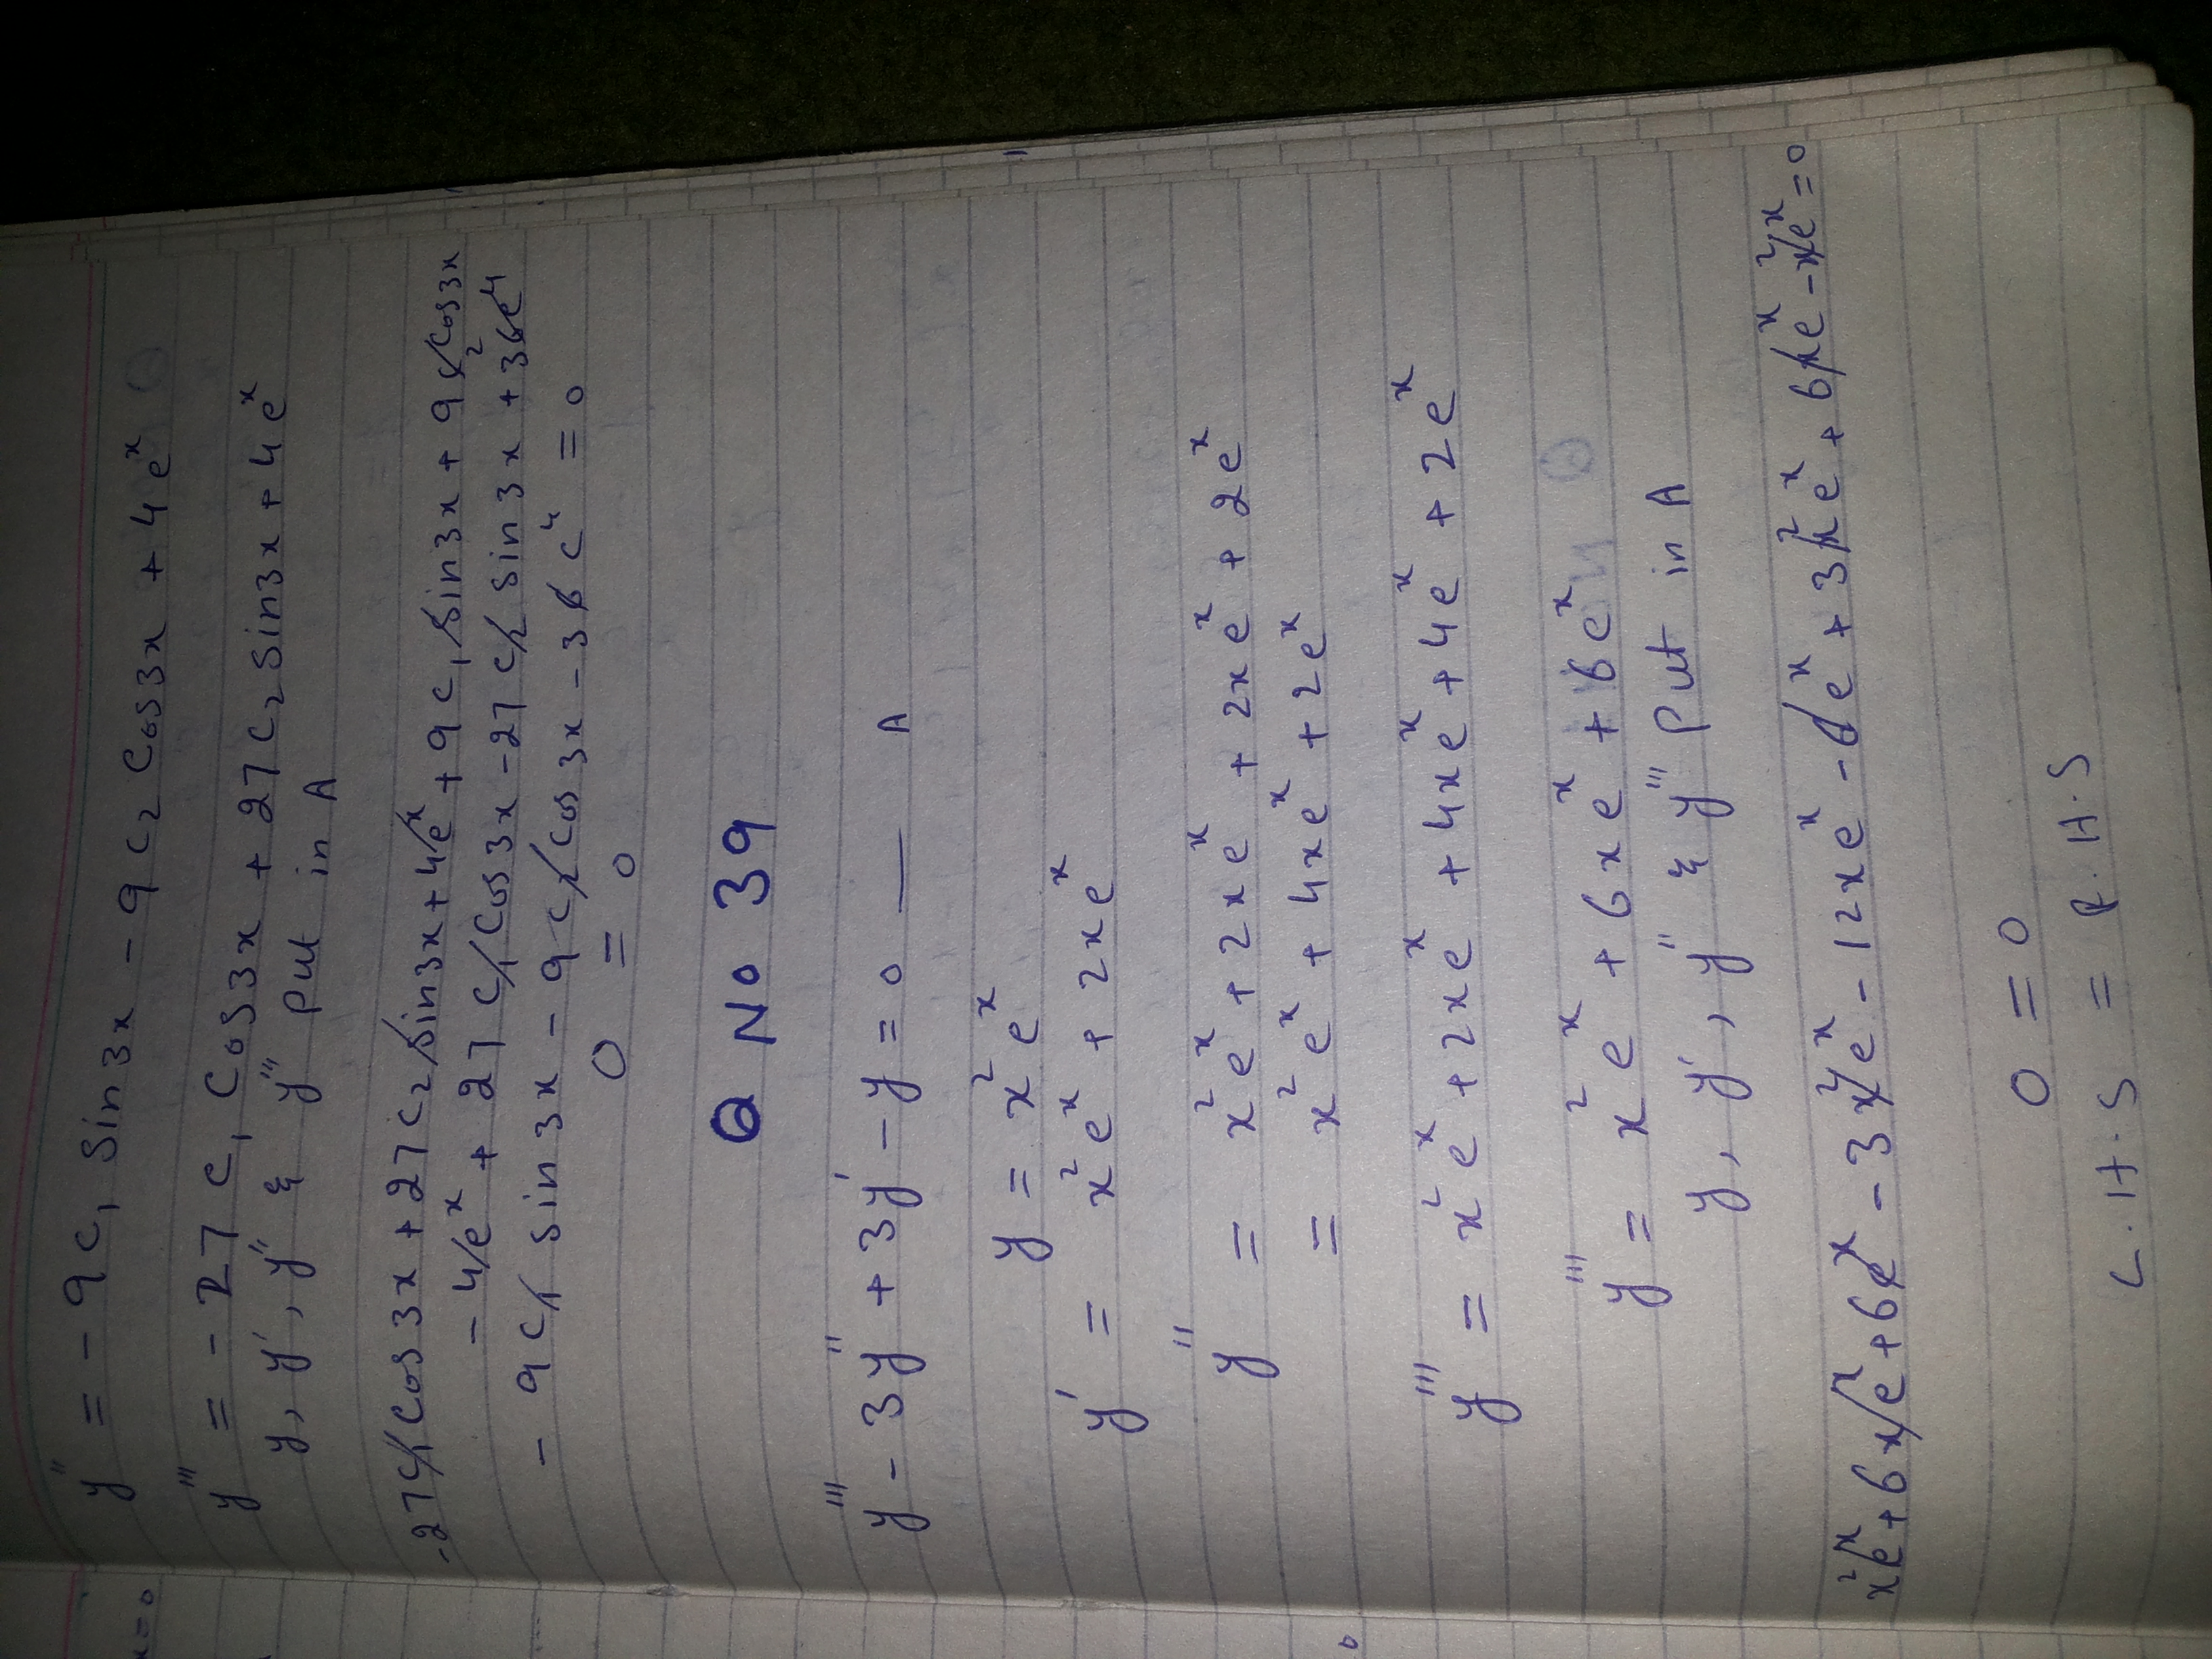 x=0
y'' = - 9c₁ Sin3x - 9c₂ Cos3x + 4eˣ
y''' = - 27 c₁ Cos3x + 27c₂ sin3x + 4eˣ
y, y', y'' & y''' Put in A
-27c₁ Cos 3x + 27c₂ Sin3x + 4eˣ + 9c₁ Sin3x + 9c₂ Cos3x
- 4eˣ + 27 c₁ Cos3x - 27 c₂ sin3x + 36e⁴
- 9c₁ sin3x - 9c₂ Cos 3x - 36 e⁴ = 0
0 = 0
Q No 39
y''' - 3y'' + 3y' - y = 0 — A
y = x² eˣ
y' = x² eˣ + 2xeˣ
y'' = x² eˣ + 2xeˣ + 2xeˣ + 2eˣ
= x² eˣ + 4xeˣ + 2eˣ
y''' = x² eˣ + 2xeˣ + 4xeˣ + 4eˣ + 2eˣ
y''' = x² eˣ + 6xeˣ + 6eˣ
y, y', y'' & y''' Put in A
x²eˣ + 6xeˣ + 6eˣ - 3x²eˣ - 12xeˣ - 6eˣ + 3x²eˣ + 6xeˣ - x²eˣ = 0
0 = 0
L.H.S = R.H.S